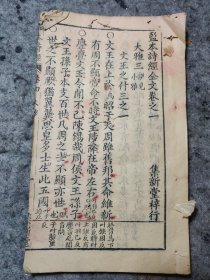 監本詩經全文卷之一
大雅三
集新堂梓行
文王之什三之一
文王在上於昭于天周雖舊邦其命維新
有周不顯帝命不時文王陟降在帝左右
亹亹文王令聞不已陳錫哉周侯文王孫子
文王孫子本支百世凡周之士不顯亦世
世之不顯厥猶翼翼思皇多士生此王國